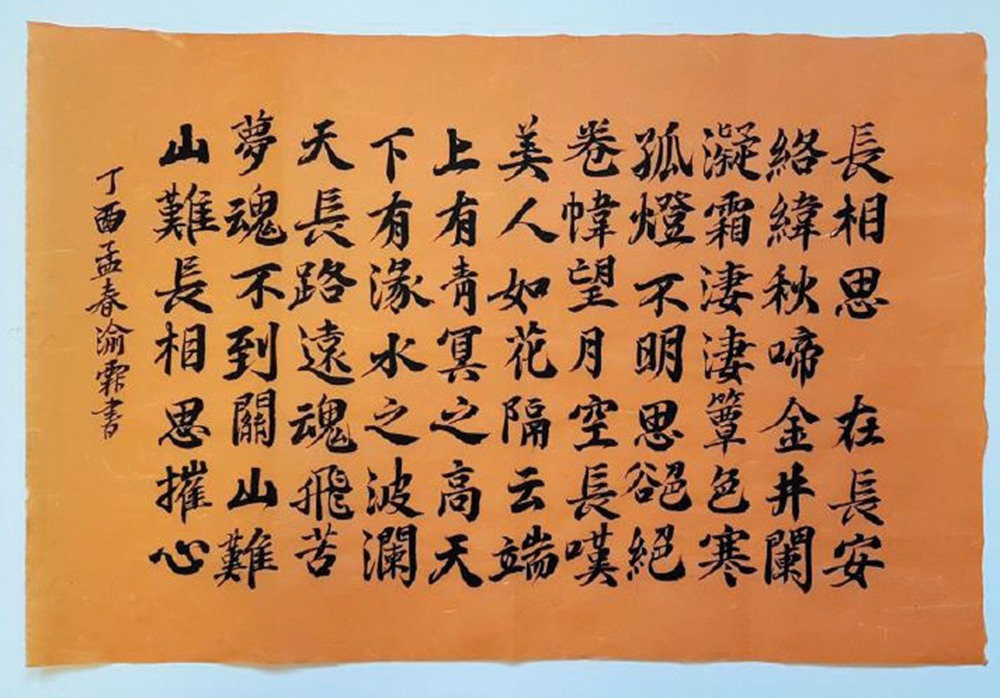 長相思 在長安
絡緯秋啼金井闌
凝霜淒淒簟色寒
孤燈不明思絕
卷幃望月空長嘆
美人如花隔云端
上有青冥之高天
下有湪水之波瀾
天長路遠魂飛苦
夢魂不到關山難
山難長相思摧心
丁酉孟春渝霏書